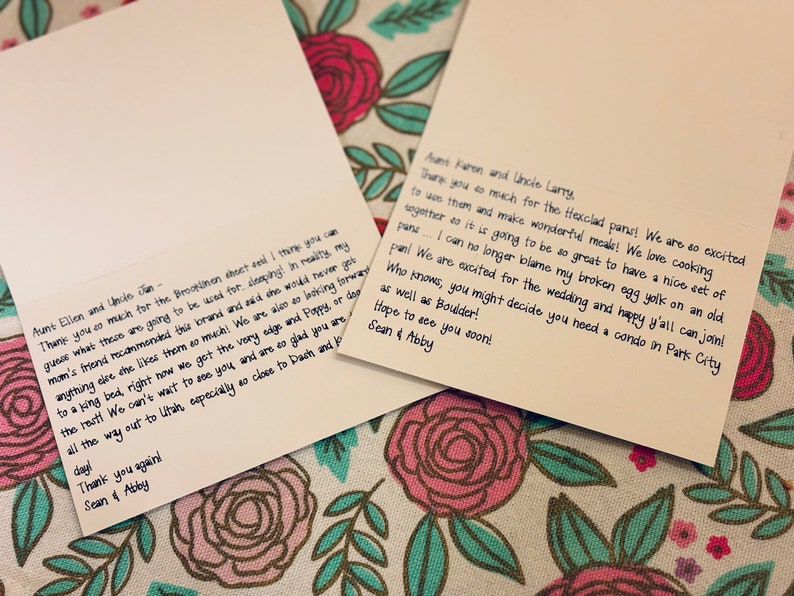 Aunt Ellen and Uncle Jan -
Thank you so much for the Brooklinen sheet set! I think you can
guess what these are going to be used for...sleeping! In reality, my
mom's friend recommended this brand and said she would never get
anything else she likes them so much! We are also so looking forward
to a king bed, right now we get the very edge and Poppy, or dog
the rest! We can't wait to see you, and are so glad you are
all the way out to Utah, especially so close to Dash and
day!
Thank you again!
Sean & Abby
Aunt Karen and Uncle Larry,
Thank you so much for the Hexclad pans! We are so excited
to use them and make wonderful meals! We love cooking
together so it is going to be so great to have a nice set of
pans ... I can no longer blame my broken egg yolk on an old
pan! We are excited for the wedding and happy y'all can join!
Who knows, you might decide you need a condo in Park City
as well as Boulder!
Hope to see you soon!
Sean & Abby